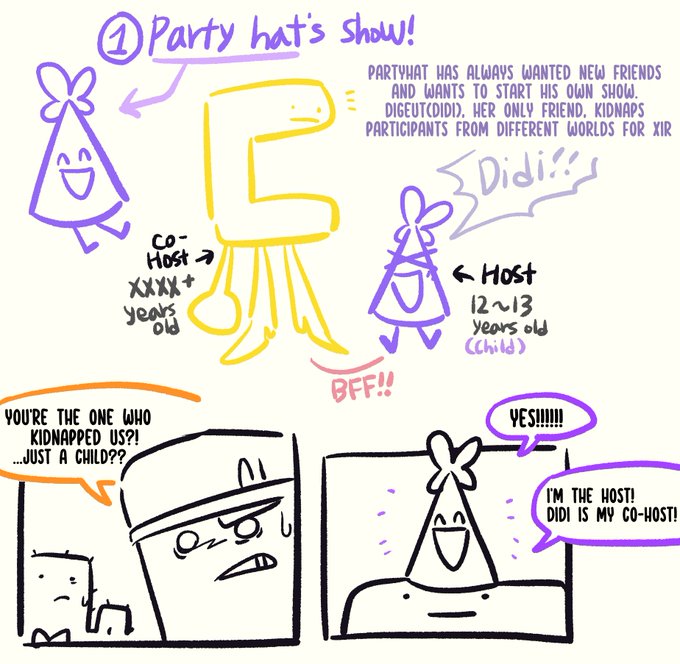 ① Party hat's show!
PARTYHAT HAS ALWAYS WANTED NEW FRIENDS
AND WANTS TO START HIS OWN SHOW.
DIGEUT(DIDI), HER ONLY FRIEND, KIDNAPS
PARTICIPANTS FROM DIFFERENT WORLDS FOR XIR
Didi!!
Co-
Host
XXXX+
years
old
Host
12~13
years old
(child)
BFF!!
YOU'RE THE ONE WHO
KIDNAPPED US?!
...JUST A CHILD??
YES!!!!!!
I'M THE HOST!
DIDI IS MY CO-HOST!